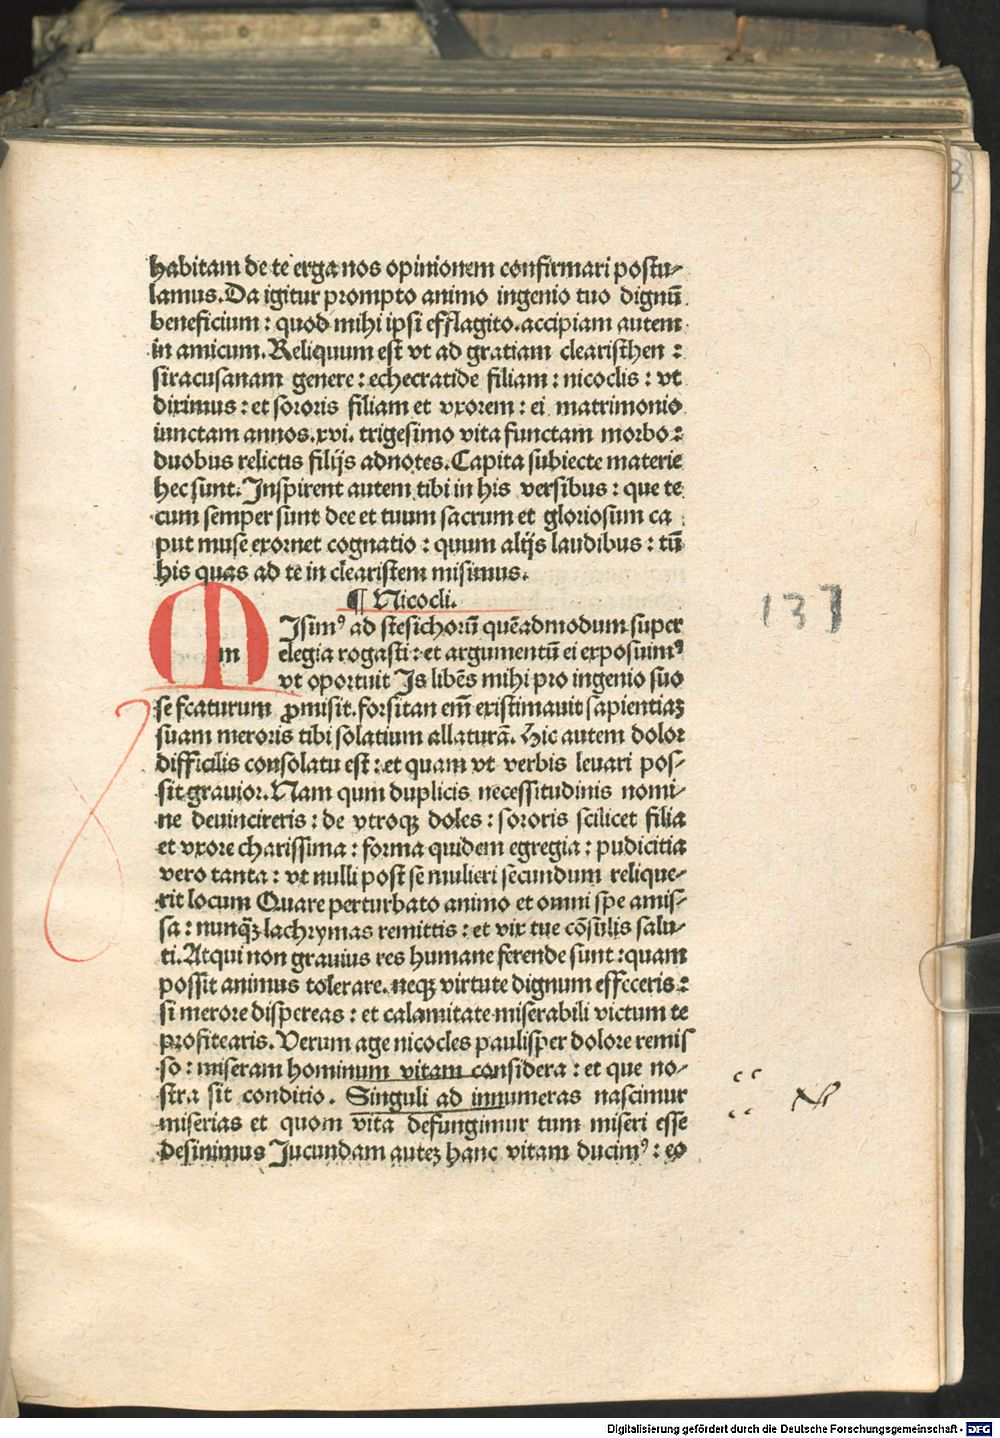 habitam de te erga nos opinionem confirmari postu⸗
lamus. Da igitur prompto animo ingenio tuo dignū
beneficium : quod mihi ipsi efflagito. accipiam autem
in amicum. Reliquum est vt ad gratiam clearisthen :
siracusanam genere : echecratide filiam : nicoclis : vt
diximus : et sororis filiam et vxorem : ei matrimonio
iunctam annos. xvi. trigesimo vita functam morbo :
duobus relictis filijs adnotes. Capita subiecte materie
hec sunt. Inspirent autem tibi in his versibus : que te
cum semper sunt dee et tuum sacrum et gloriosum ca
put muse exornet cognatio : quum alijs laudibus : tū
his quas ad te in clearistem misimus.
¶ Nicocli.
MIsimꝰ ad stesichorū quēadmodum super
m elegia rogasti : et argumentū ei exposuimꝰ
vt oportuit Is libēs mihi pro ingenio suo
se fcaturum ꝓmisit. forsitan em̄ existimauit sapientiaꝫ
suam meroris tibi solatium allaturā. Hic autem dolor
difficilis consolatu est : et quam vt verbis leuari pos⸗
sit grauior. Nam qum duplicis necessitudinis nomi⸗
ne deuincireris : de vtroqꝫ doles : sororis scilicet filia
et vxore charissima : forma quidem egregia : pudicitia
vero tanta : vt nulli post se mulieri secundum relique⸗
rit locum Quare perturbato animo et omni spe amis⸗
sa : nunqꝫ̄ lachrymas remittis : et vix tue cōsulis salu⸗
ti. Atqui non grauius res humane ferende sunt : quam
possit animus tolerare. neqꝫ virtute dignum effeceris :
si merore dispereas : et calamitate miserabili victum te
profitearis. Verum age nicocles paulisper dolore remis
so : miseram hominum vitam considera : et que no⸗
stra sit conditio. Singuli ad innumeras nascimur
miserias et quom vita defungimur tum miseri esse
desinimus Iucundam auteꝫ hanc vitam ducimꝰ : eo
137
Digitalisierung gefördert durch die Deutsche Forschungsgemeinschaft - DFG